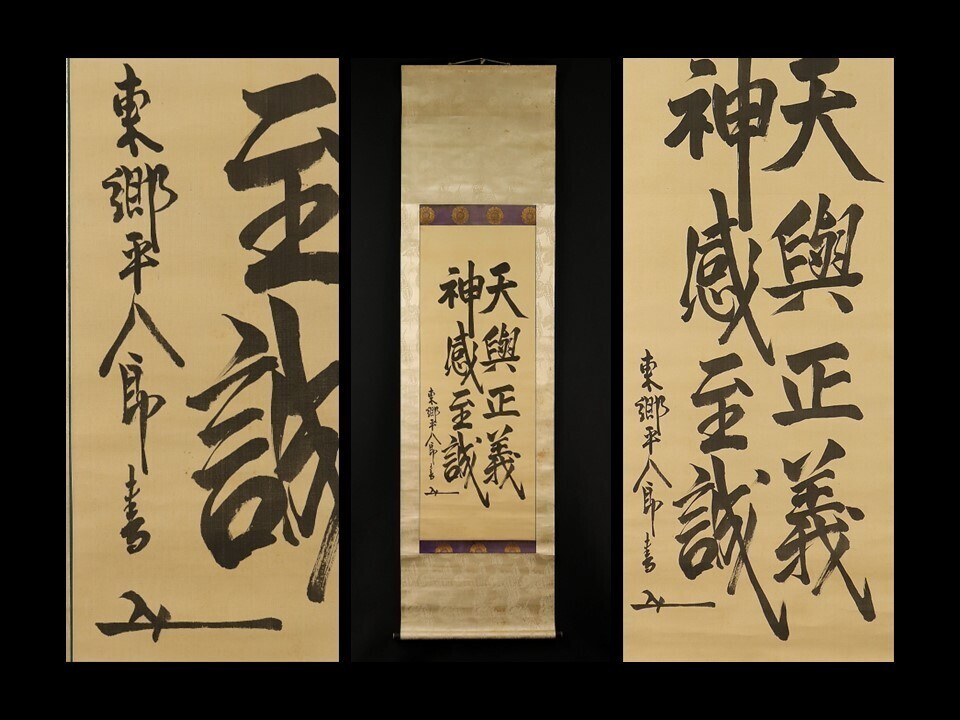 至誠
東郷平八郎書
天與正義
神感至誠
東郷平八郎書
天與正義
神感至誠
東郷平八郎書